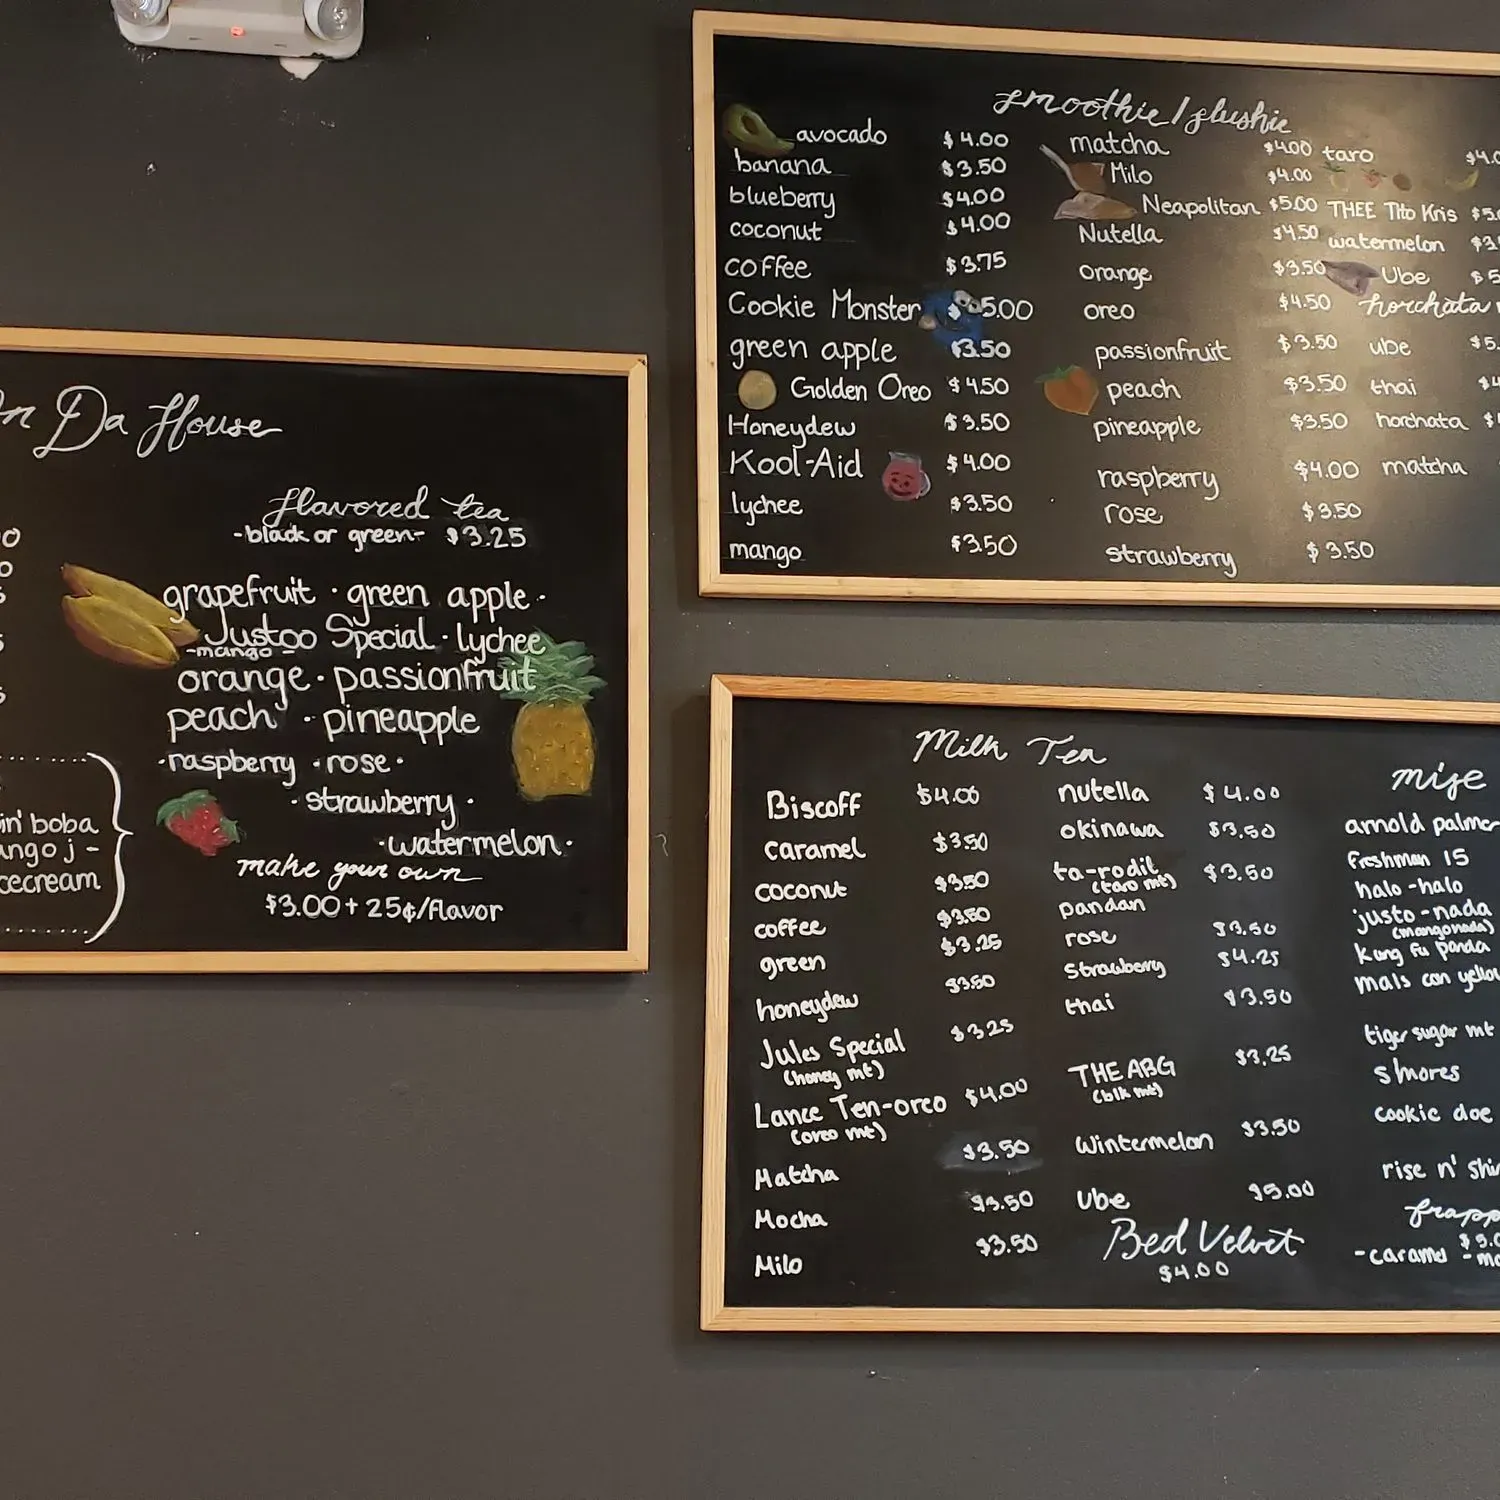 Da House
flavored tea
-black or green- $3.25
grapefruit · green apple ·
Justoo Special · lychee
-mango-
orange · passionfruit
peach · pineapple
· raspberry · rose ·
· strawberry ·
· watermelon ·
make your own
$3.00 + 25¢/flavor
boba
smoothie / slushie
avocado $4.00
banana $3.50
blueberry $4.00
coconut $4.00
coffee $3.75
Cookie Monster $5.00
green apple $3.50
Golden Oreo $4.50
Honeydew $3.50
Kool-Aid $4.00
lychee $3.50
mango $3.50
matcha $4.00
Milo $4.00
Neapolitan $5.00
Nutella $4.50
orange $3.50
oreo $4.50
passionfruit $3.50
peach $3.50
pineapple $3.50
raspberry $4.00
rose $3.50
strawberry $3.50
taro
THEE Tito Kris
watermelon
Ube
horchata
ube
thai
horchata
matcha
Milk Tea
Biscoff $4.00
caramel $3.50
coconut $3.50
coffee $3.50
green $3.25
honeydew $3.50
Jules Special $3.25
(honey mt)
Lance Ten-oreo $4.00
(oreo mt)
Matcha $3.50
Mocha $3.50
Milo $3.50
nutella $4.00
okinawa $3.50
ta-rodil $3.50
(taro mt)
pandan
rose $3.50
strawberry $4.25
thai $3.50
THE ABG $3.25
(blk mt)
Wintermelon $3.50
Ube $5.00
Bed Velvet
$4.00
arnold
freshman 15
halo-halo
justo-nada
(mangonada)
kung fu panda
mais con
tiger sugar mt
s'mores
cookie doe
rise n'
-caramel